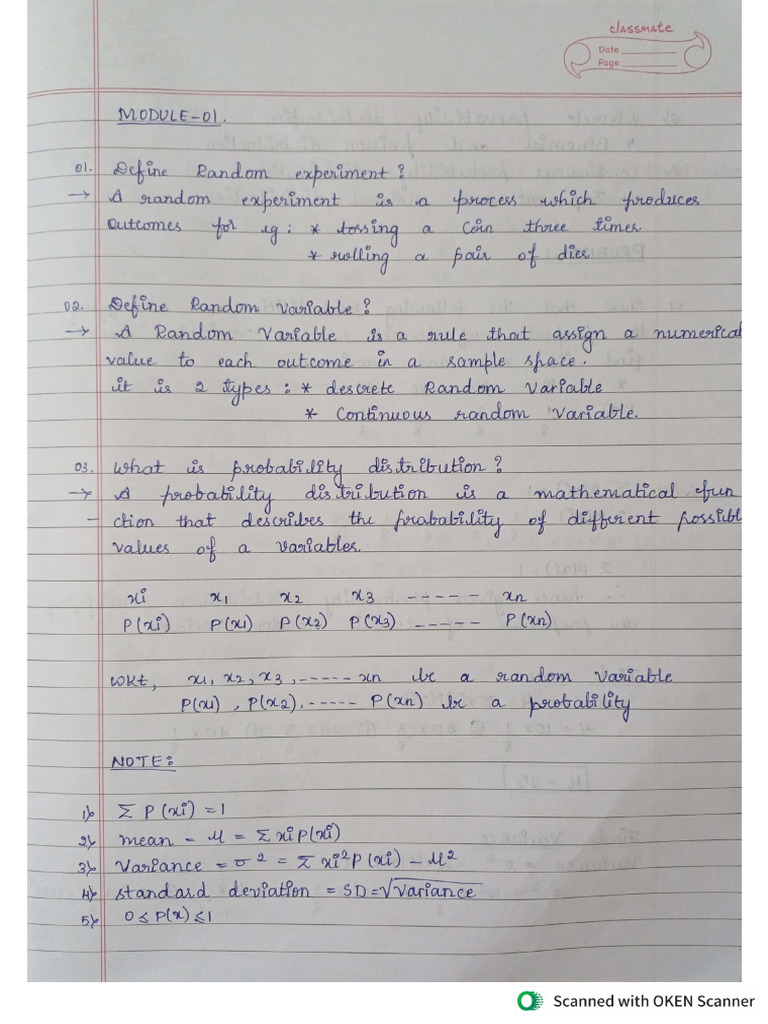 classmate
Date
Page
MODULE-01.
01. Define Random experiment?
→ A random experiment is a process which produces
outcomes for eg: * tossing a coin three times
* rolling a pair of dies
02. Define Random variable?
→ A Random Variable is a rule that assign a numerical
value to each outcome in a sample space.
it is 2 types: * descrete Random variable
* continuous random variable.
03. What is probability distribution?
→ A probability distribution is a mathematical fun
- ction that describes the probability of different possibl
values of a variables.
xi x1 x2 x3 ------ xn
P(xi) P(x1) P(x2) P(x3) ------ P(xn)
WKt, x1, x2, x3, ------ xn be a random variable
P(x1), P(x2), ------ P(xn) be a probability
NOTE:
1) Σ P(xi) = 1
2) mean - μ = Σ xi P(xi)
3) Variance = σ² = Σ xi² P(xi) - μ²
4) standard deviation = SD = √variance
5) 0 ≤ P(x) ≤ 1
Scanned with OKEN Scanner